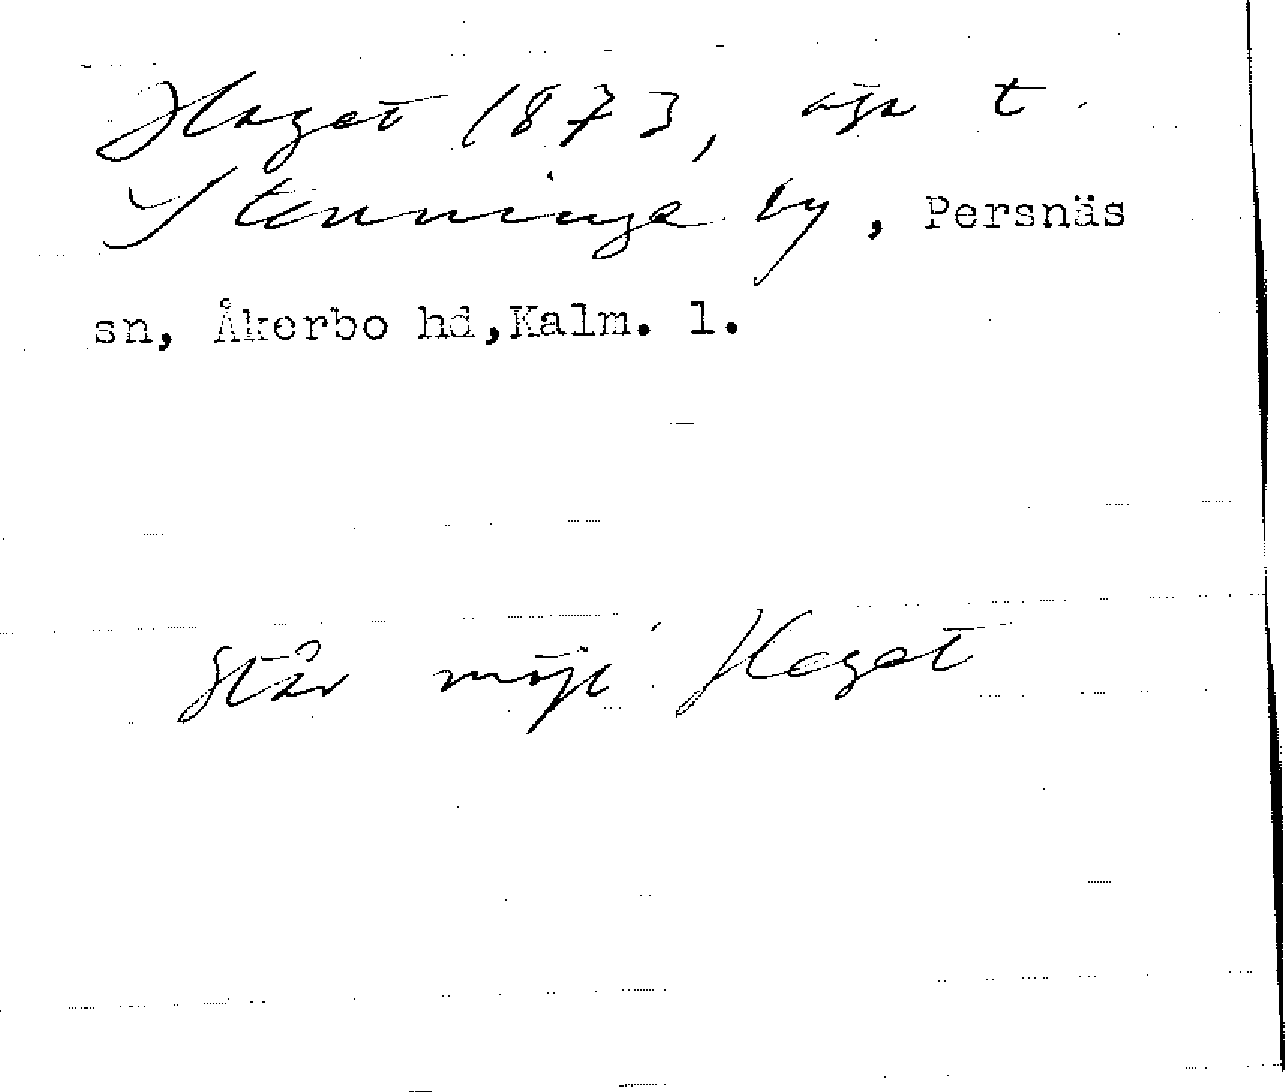 Haget 1873, äga t.
Stenninge by, Persnäs
sn, Åkerbo hd,Kalm. l.
Står möjl. Heget